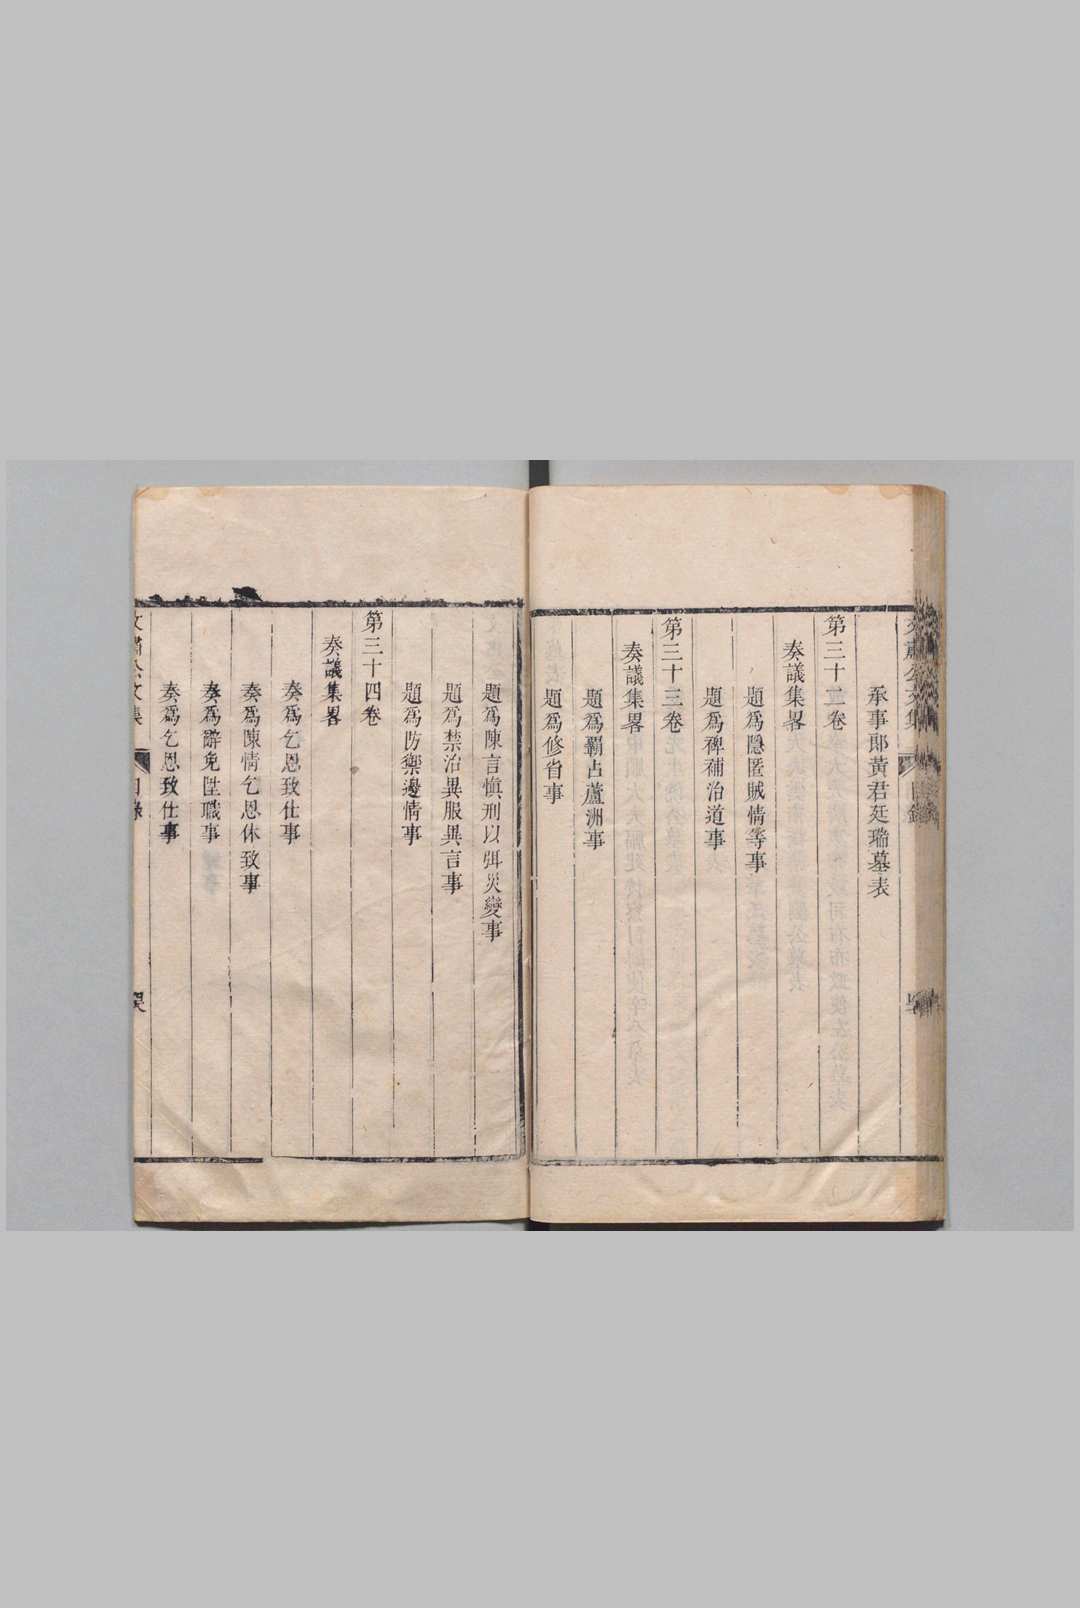 承事郎黃君廷瑞墓表
第三十二卷
奏議集畧
題爲隱匿賊情等事
題爲裨補治道事
第三十三卷
奏議集畧
題爲霸占蘆洲事
題爲修省事
題爲陳言慎刑以弭災變事
題爲禁治異服異言事
題爲防禦邊情事
第三十四卷
奏議集畧
奏爲乞恩致仕事
奏爲陳情乞恩休致事
奏爲辭免陞職事
奏爲乞恩致仕事
文肅公文集
目錄